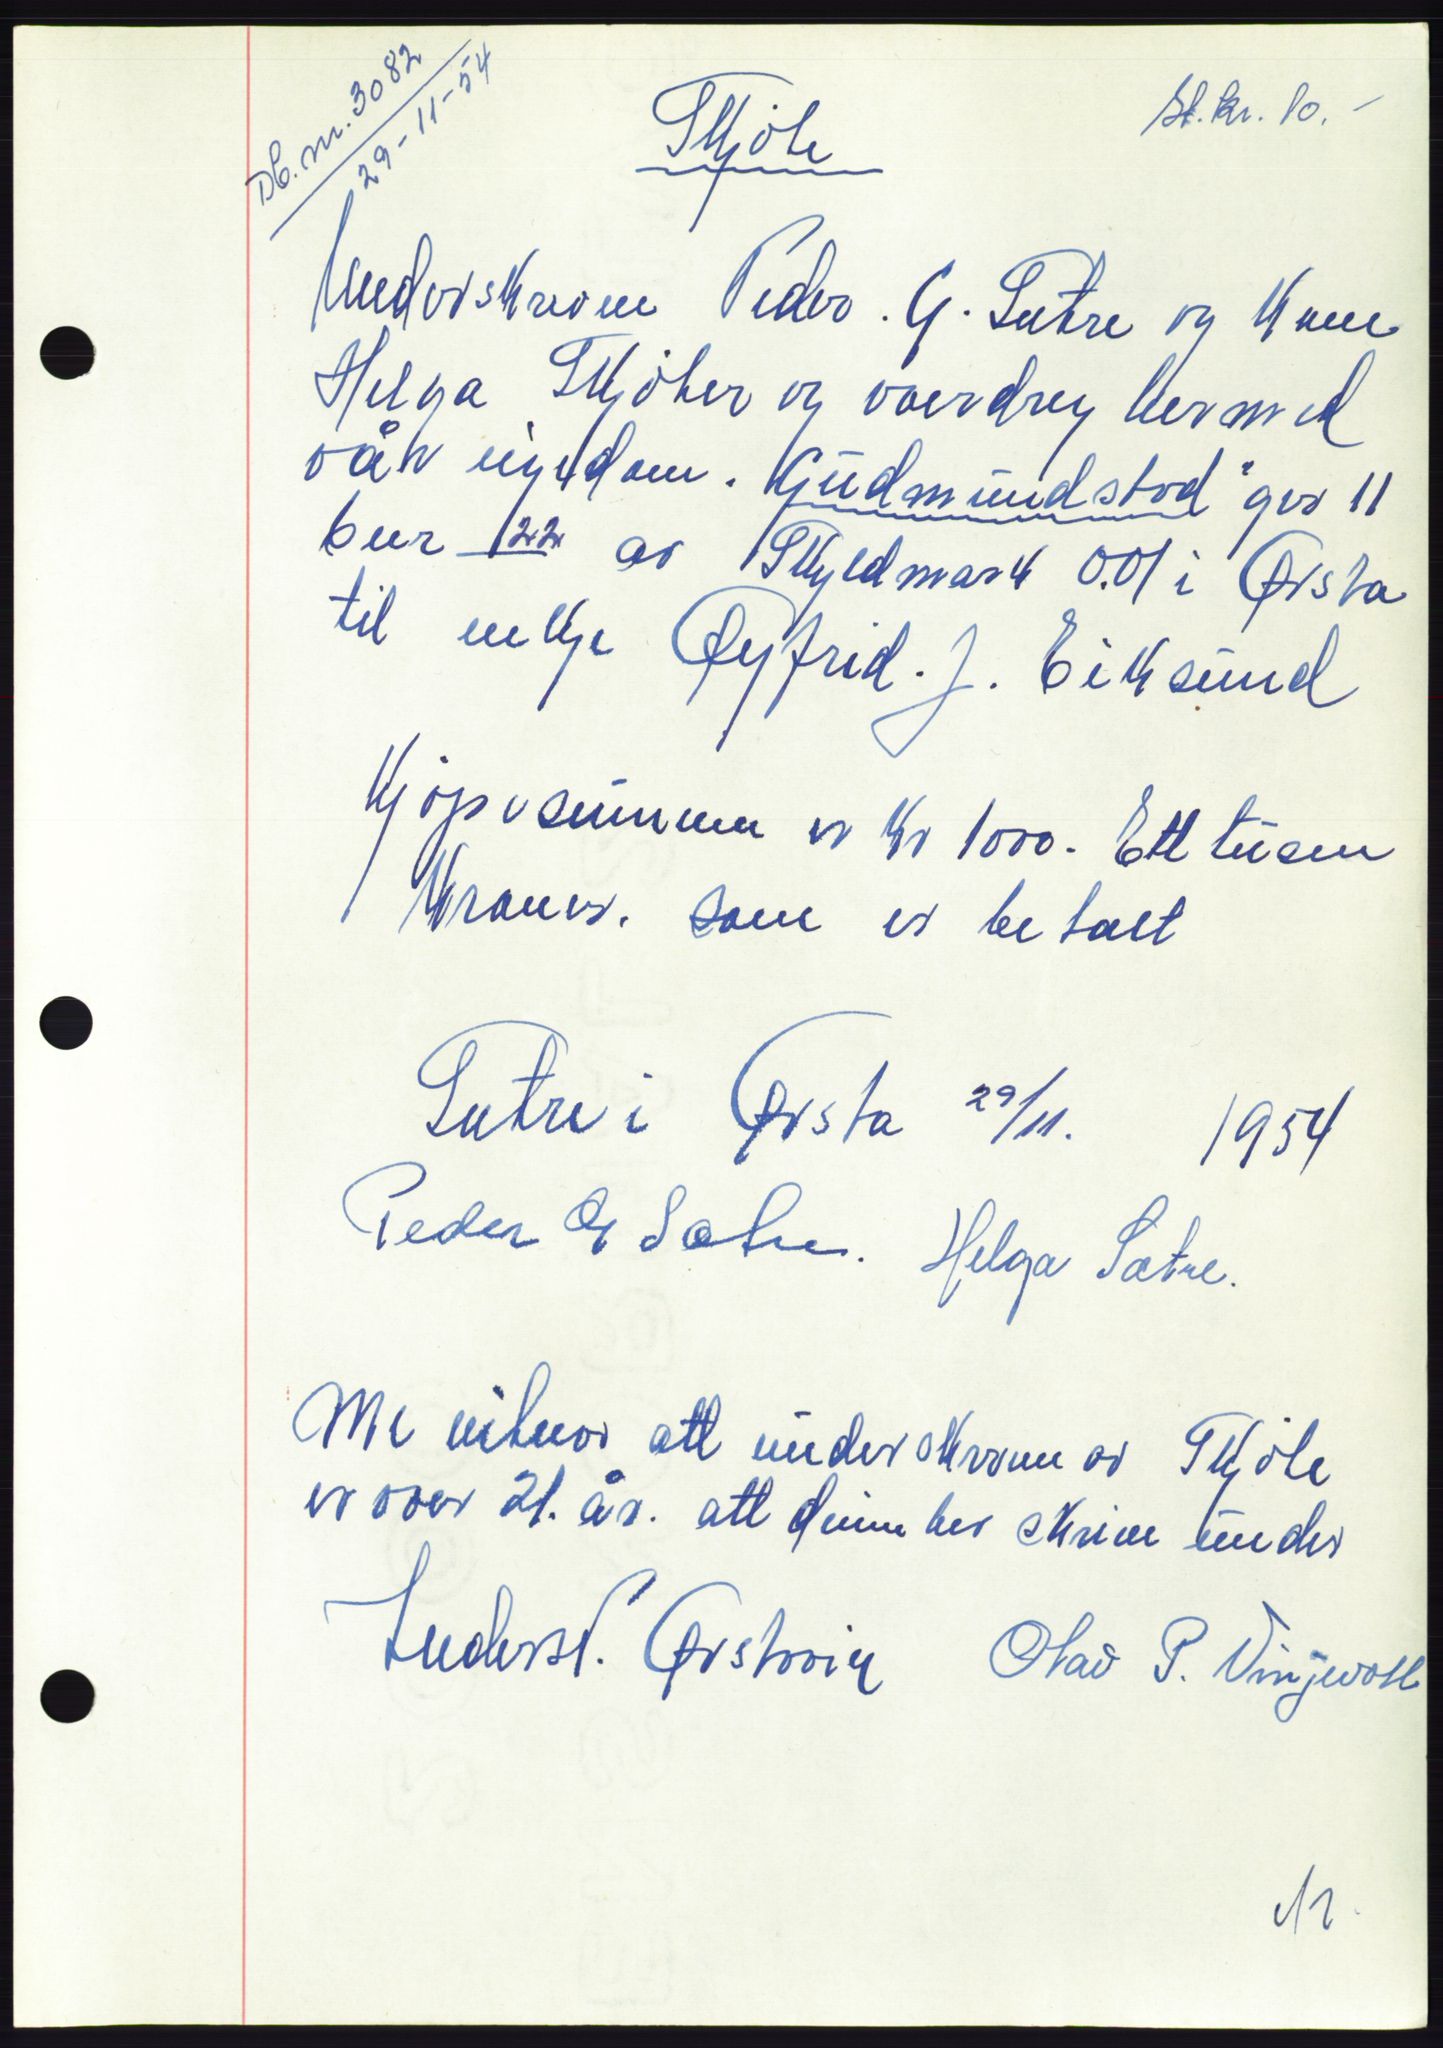 Db. nr. 3082
29-11-54
St. kr. 10.-
Skjöte
Underskreven Peder. G. Sætre og Kone
Helga Skjöter og overdreg hermed
vår eigedom. "Gudmundstod" gnr 11
bnr 22 av Skyldmark 0.01 i Ørsta
til enkje Øyfrid. J. Eiksund
Kjöpesummen er Kr 1000. Ett tusen
Kroner. som er betalt
Sætre i Ørsta 29/11. 1954
Peder G Sætre. Helga Sætre.
Me vitner att underskreven av Skjöte
er over 21. år. att deim her skrive under
Anders P. Ørstavik Olav P. Vinjevoll